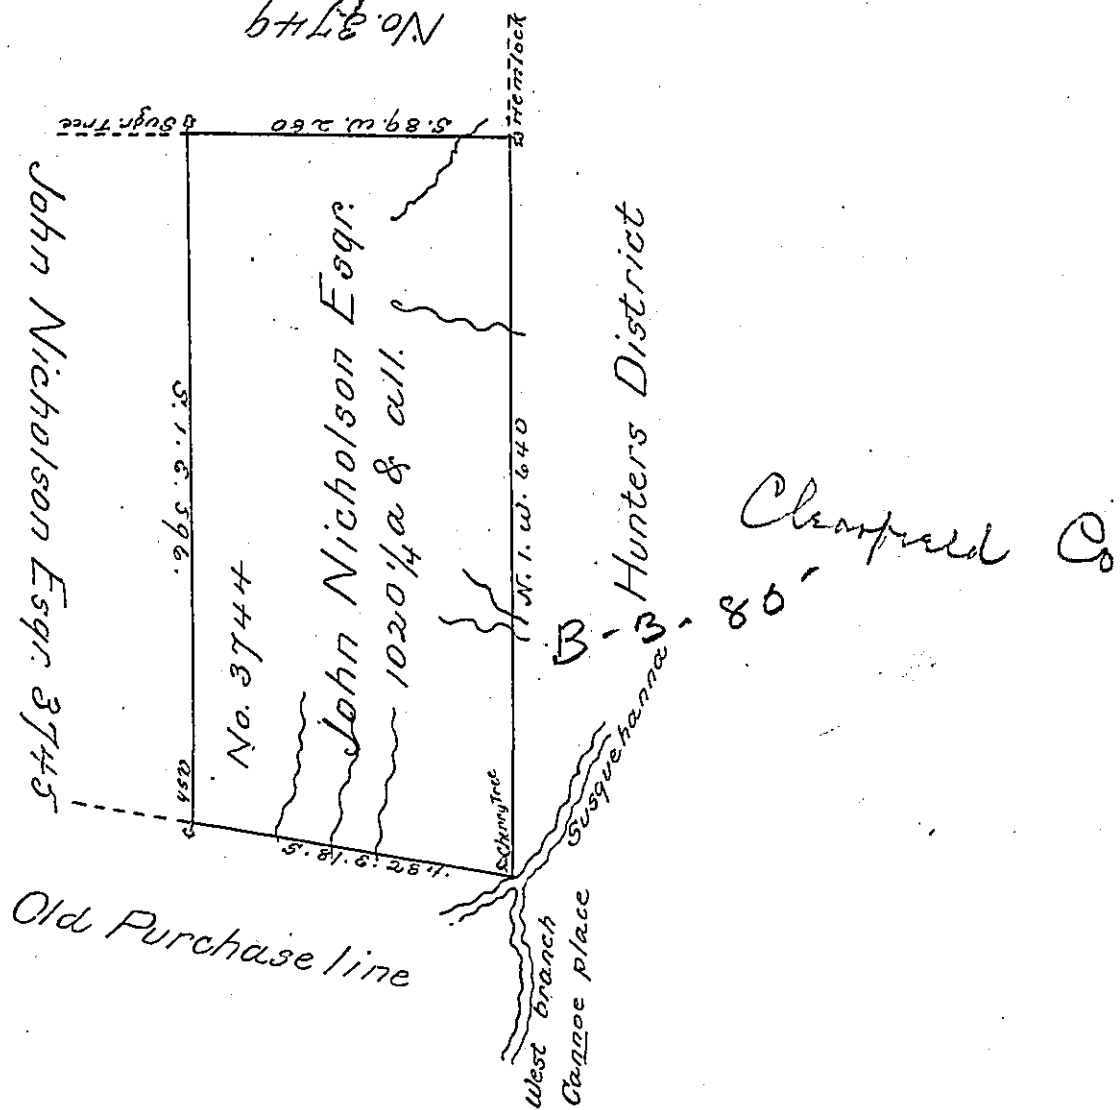 No. 3749
Hemlock
Sugr. Tree
S. 89. W. 260
John Nicholson Esqr. 3745
S. 1. E. 596.
No. 3744
John Nicholson Esqr.
1020 1/4 a & all.
N. 1. W. 640
Hunters District
Clearfield Co
B-B-80
Cherry Tree
S. 81. E. 287.
Old Purchase line
Susquehanna
West branch
Cannoe place